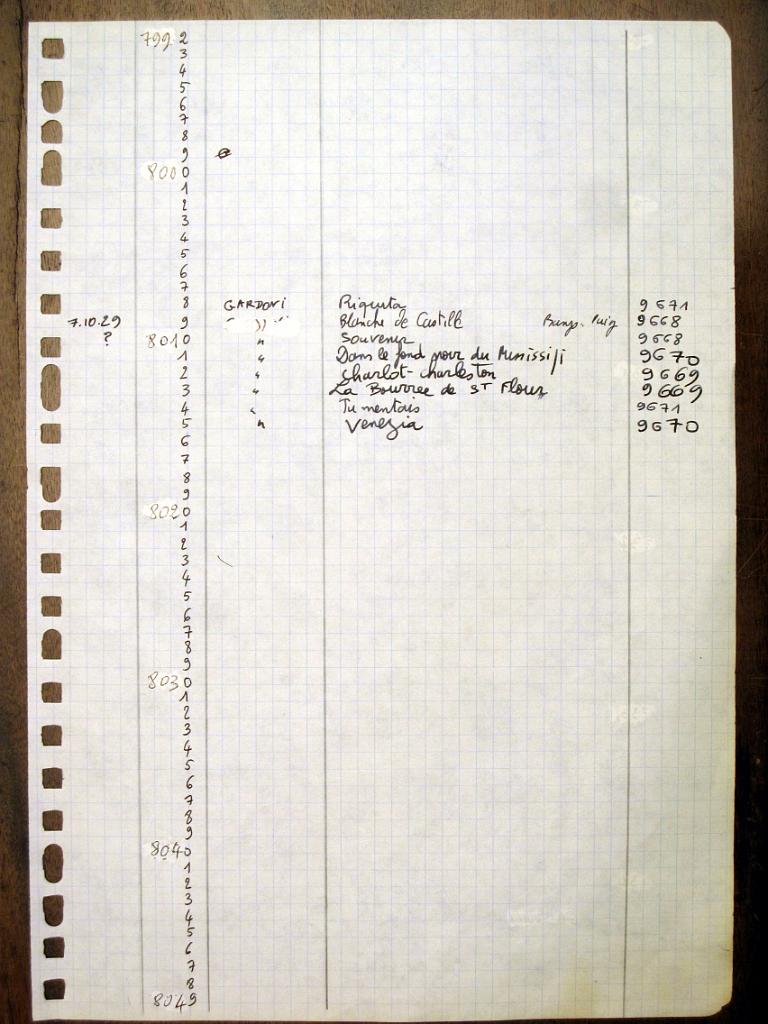 7992
3
4
5
6
7
8
9
8000
1
2
3
4
5
6
7
8 GARDONI Riquita 9671
7.10.29 9 " )) " Blanche de Castille Puig 9668
? 8010 " Souvenir 9668
1 " Dans le fond noir du Mississipi 9670
2 " Charlot-charleston 9669
3 " La Bourree de ST Flour 9669
4 " Tu mentais 9671
5 " Venezia 9670
6
7
8
9
8020
1
2
3
4
5
6
7
8
9
8030
1
2
3
4
5
6
7
8
9
8040
1
2
3
4
5
6
7
8
8049